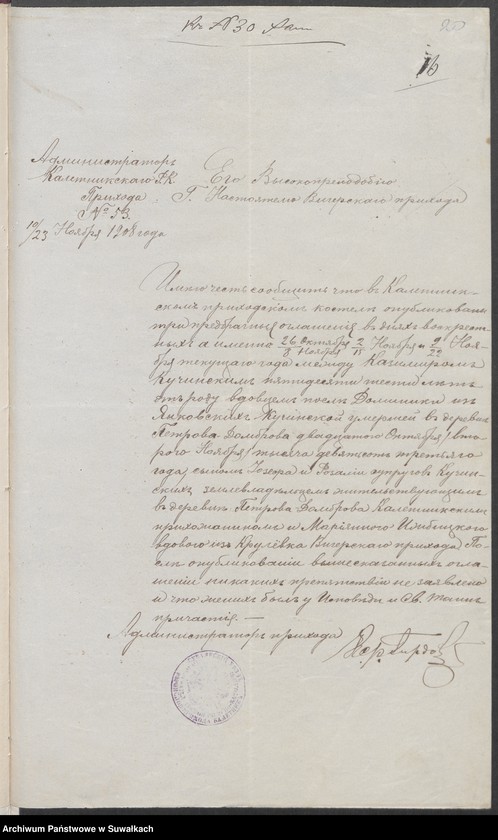 Къ № 30
16
Администраторъ
Калетникскаго Р.К.
Прихода
№ 53
10/23 Ноября 1908 года
Его Высокопреподобію
Г. Настоятелю Вигерскаго прихода
Имѣю честь сообщить что въ Калетник-
скомъ приходскомъ костелѣ опубликованы
три предбрачныя оглашенія въ дняхъ воскрес-
ныхъ а именно 26 Октября/8 Ноября 2/15 Ноября и 9/22 Ноя-
бря текущаго года между Казимиромъ
Кучинскимъ пятидесяти шести лѣтъ
отъ роду вдовцемъ послѣ Доминики изъ
Янковскихъ Кучинской умершей въ деревнѣ
Петрова Домброва двадцатого Октября /вто-
рого Ноября/ тысяча девятсотъ третьяго
года, сыномъ Іозефа и Розаліи супруговъ Кучин-
скихъ землевладѣльцемъ жительствующимъ
въ деревнѣ Петрова Домброва Калетникскимъ
прихожаниномъ и Маріянною
вдовою изъ Вигерскаго прихода. По-
слѣ опубликованіи вышесказанныхъ огла-
шеній никакихъ препятствій не заявлено
и что женихъ былъ у Исповѣди и Св. Таинъ
причастія.
Администраторъ прихода